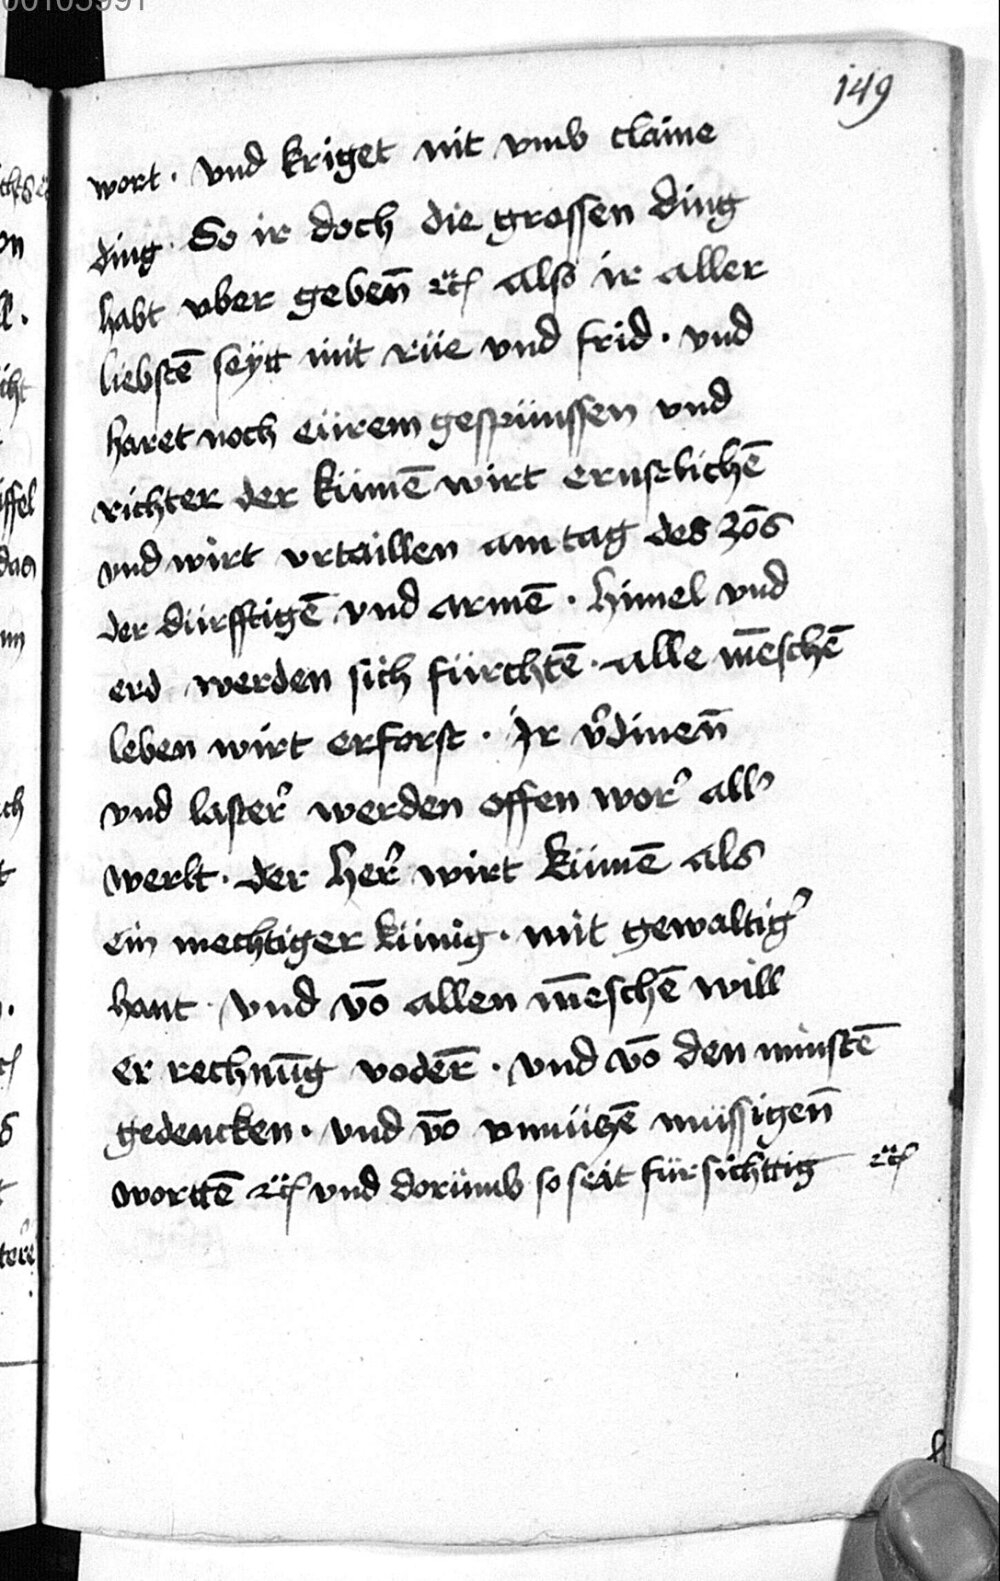 149
wort · vnd kriget nit vmb claine
ding · So ir doch die grossen ding
habt vber geben̄ ꝛc̈ also ir aller
liebstē seÿtt mit rüe vnd frid · vnd
haret noch eürem gespünssen vnd
richter der kümē wirt ernstlichē
vnd wirt vrtaillen am tag des zōs
der dürfftigē vnd armē · himel vnd
erd werden sich fürchtē · alle mēschē
leben wirt erforst · Jr v᷑dinen̄
vnd laster᷑ werden offen wor᷑ all᷑
werlt · der her᷑ wirt kümē als
ein mechtiger künig · mit gewaltig᷑
hant · vnd vō allen mēschē will
er rechnūg voder̄ · vnd vō den minstē
gedencken · vnd vō vnnüczē müssigen̄
worttē ꝛc̈ vnd dorümb so seit fürsichttig ꝛc̈